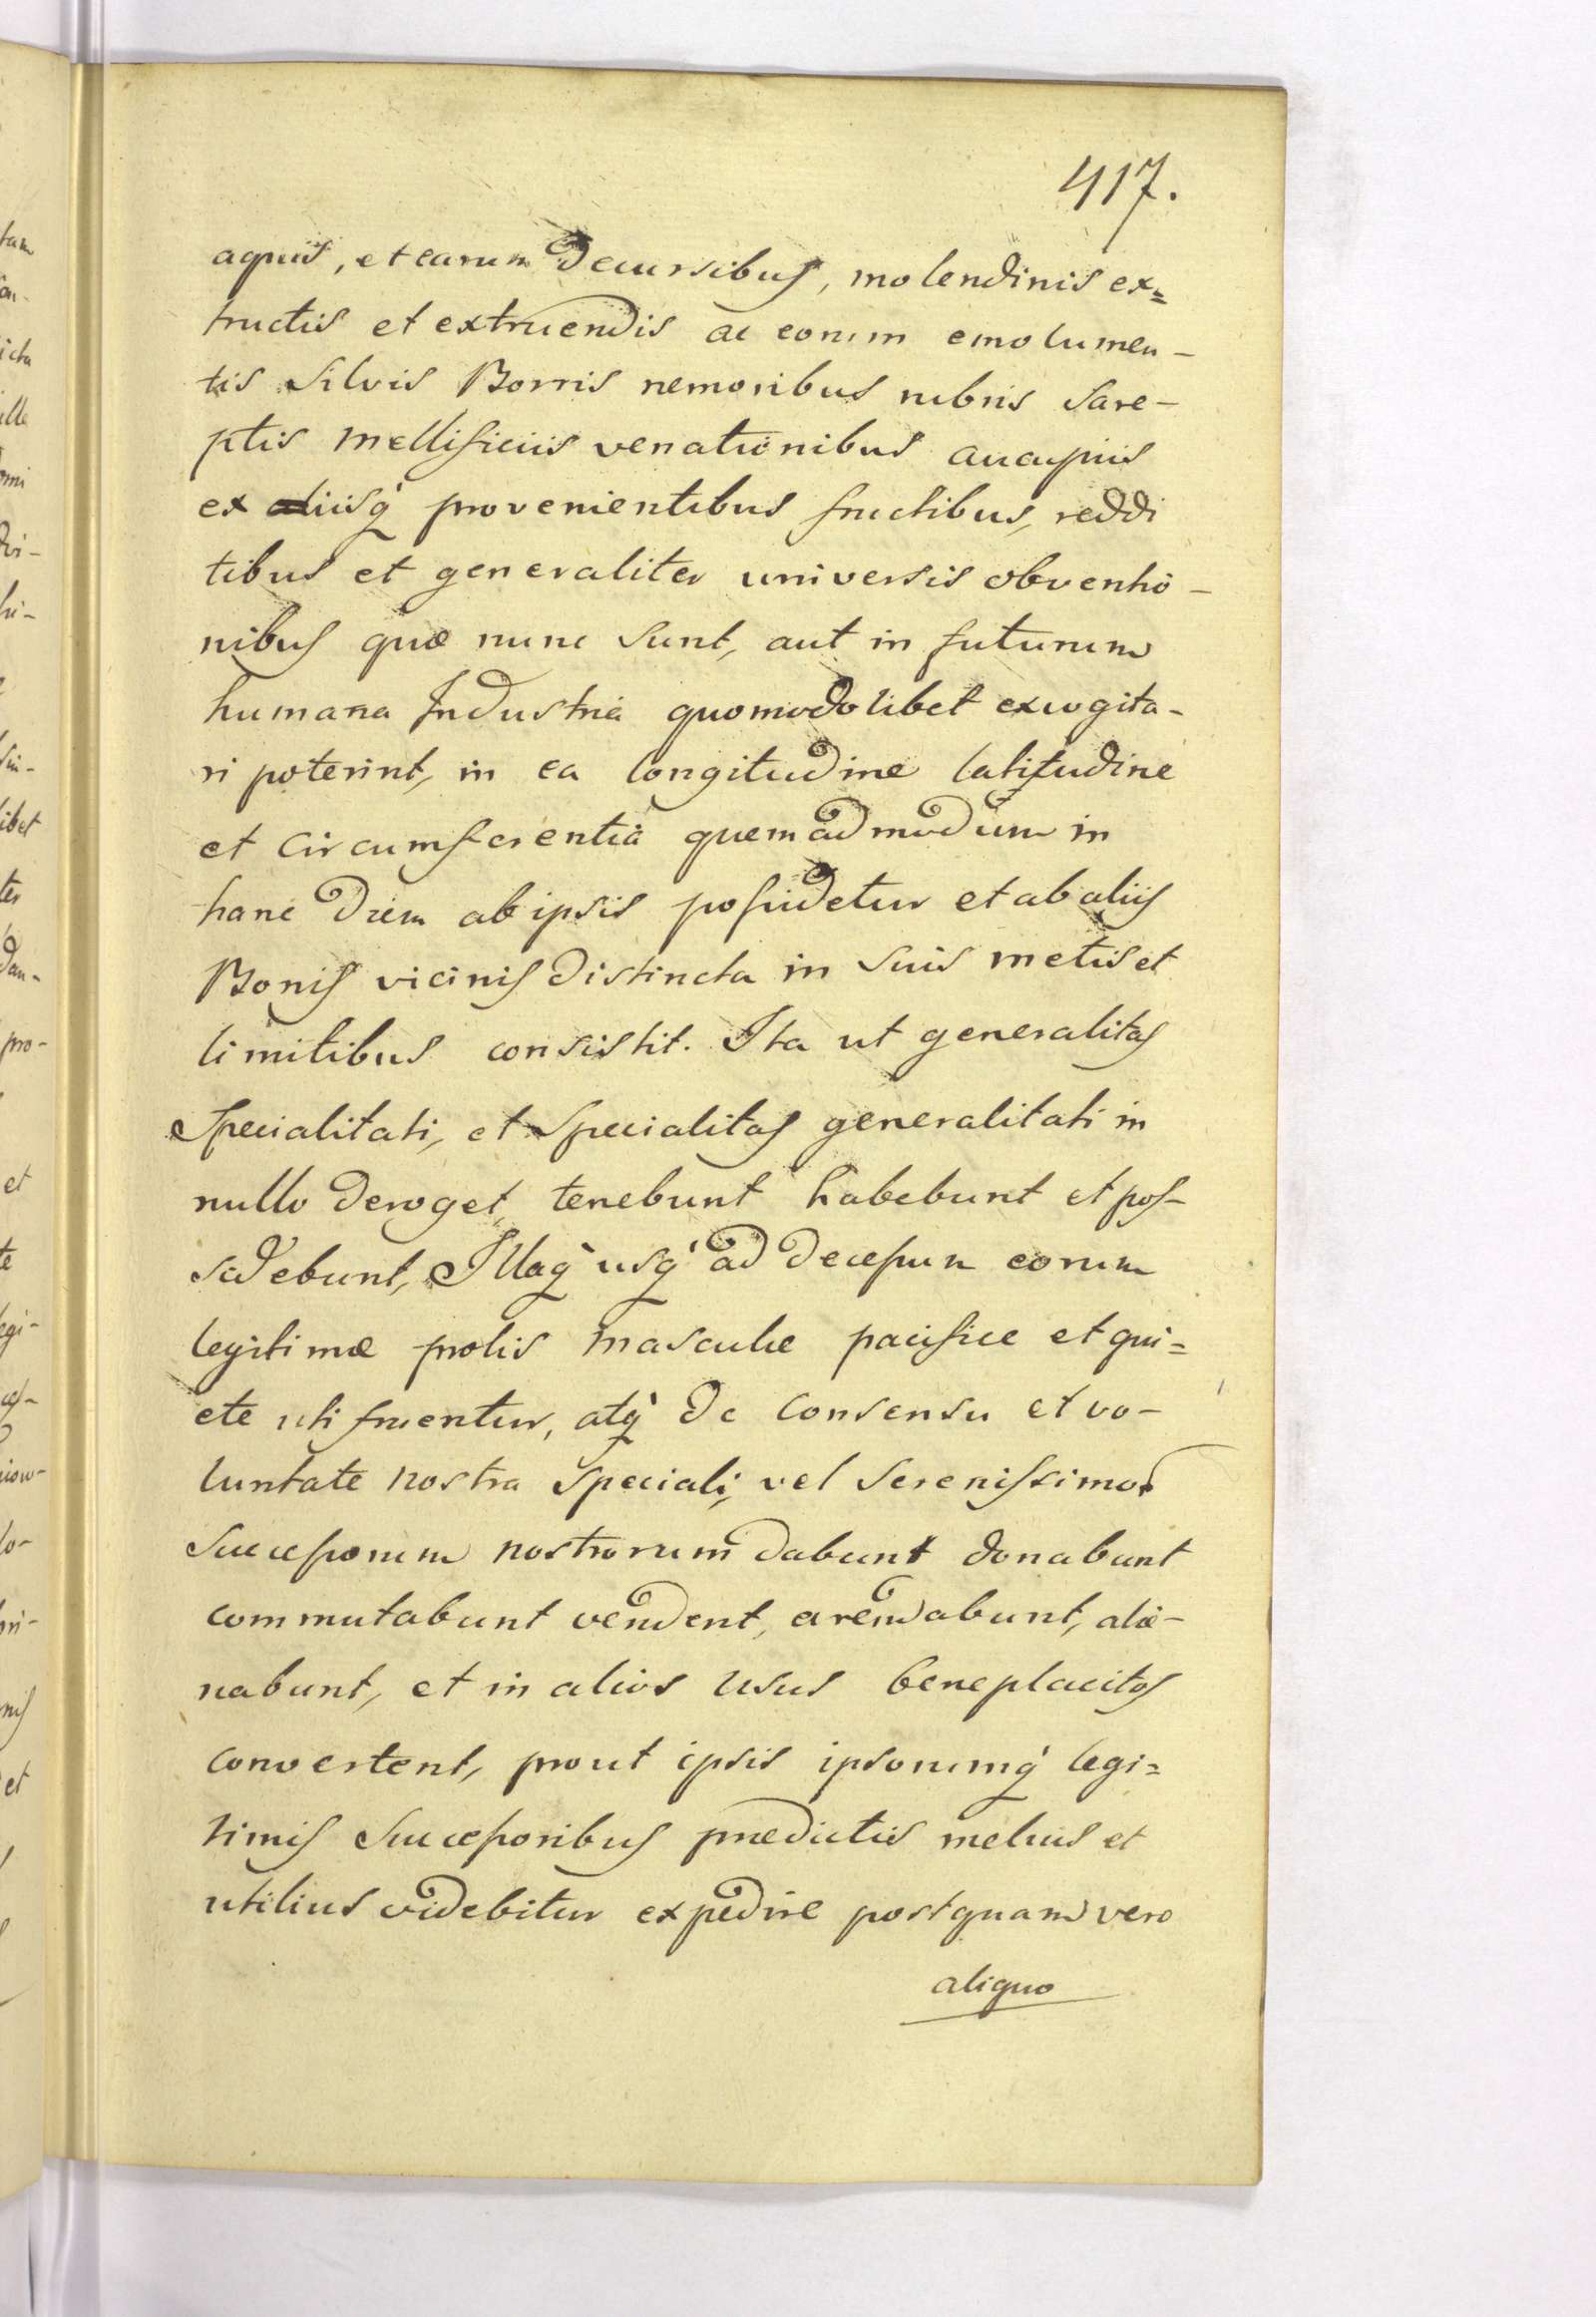 417.
aquis, et earum Decursibus, molendinis ex=
tructis et extruendis ac eorum emolumen-
tis Silvis Borris nemoribus rubris Sare-
ptis mellificiis venationibus aucupiis
ex aliisq́ provenientibus fructibus, reddi
tibus et generaliter universis obventio-
nibus quæ nunc sunt, aut in futurum
humana Industria quomodolibet excogita-
ri poterint, in ea longitudine latitudine
et circumferentia quemadmodum in
hanc Diem ab ipsis possidetur et ab aliis
Bonis vicinis Distincta in suis metis et
limitibus consistit. Ita ut generalitas
Specialitati, et Specialitas generalitati in
nullo Deroget, tenebunt habebunt et pos-
sidebunt, Illaq́ usq́ ad Decessum eorum
legitimæ prolis masculæ pacifice et qui=
ete uti fruentur, atq́ De consensu et vo-
luntate nostra speciali, vel Serenissimor
Successorum nostrorum Dabunt donabunt
commutabunt vendent, arendabunt, alie-
nabunt, et in alios usus beneplacitos
convertent, prout ipsis ipsorumq́ legi=
timis Successoribus prædictis melius et
utilius videbitur expedire postquam vero
aliquo